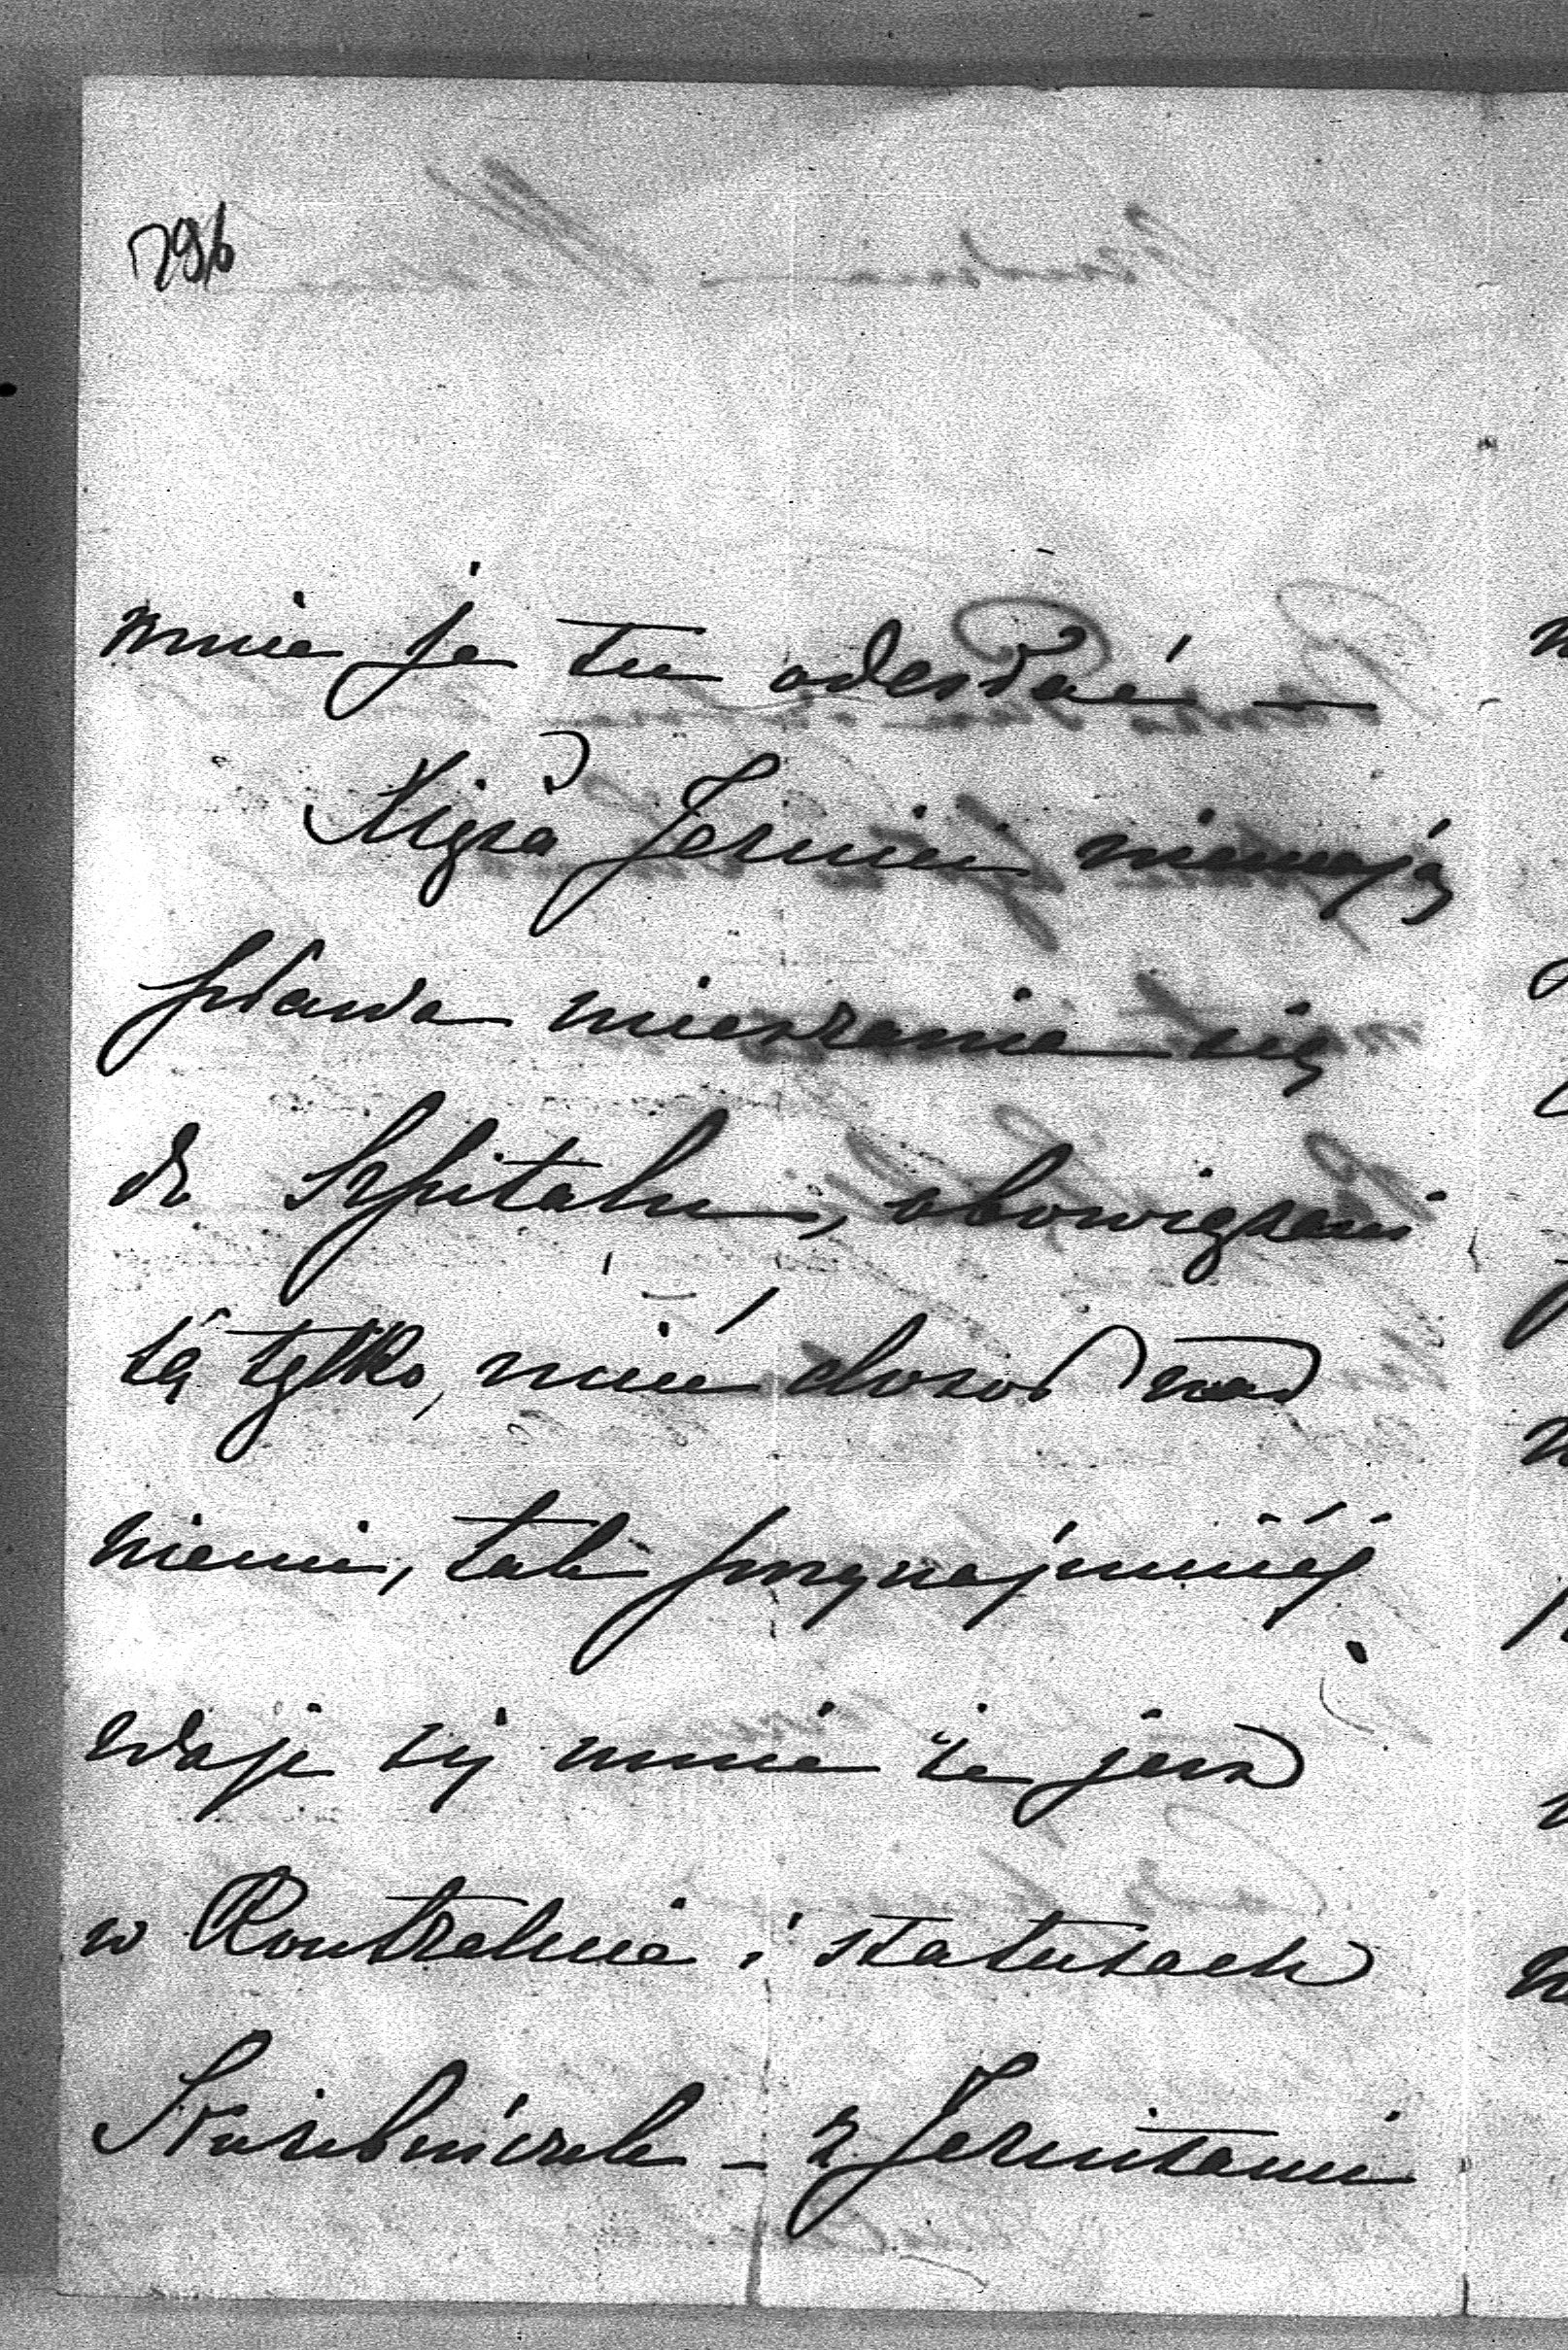 796
mnie je tu odesłać —
Xięża Jezuici niemają
prawa mieszania się
do Szpitalu, obowiązani
są tylko, mieć dozór nad
niemi, tak przynajmniéj
zdaje się mnie że jest
w Kontrakcie i statutach
Służebniczek — z Jezuitami